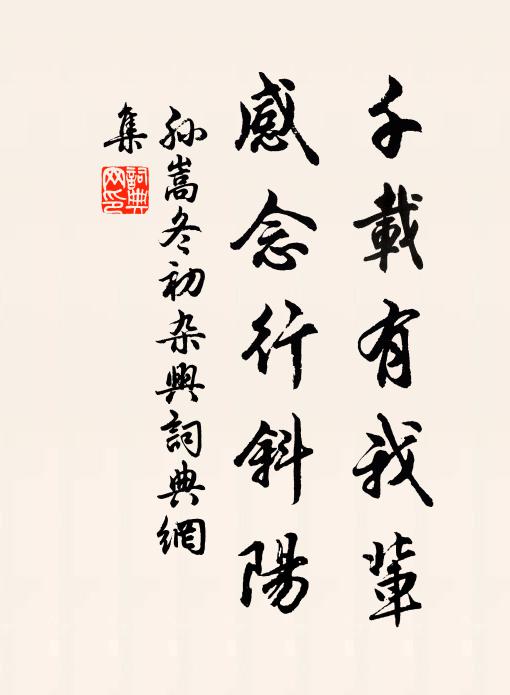 千載有我輩
感念行斜陽
孙嵩冬初杂興詞典網
集
詞典
网印